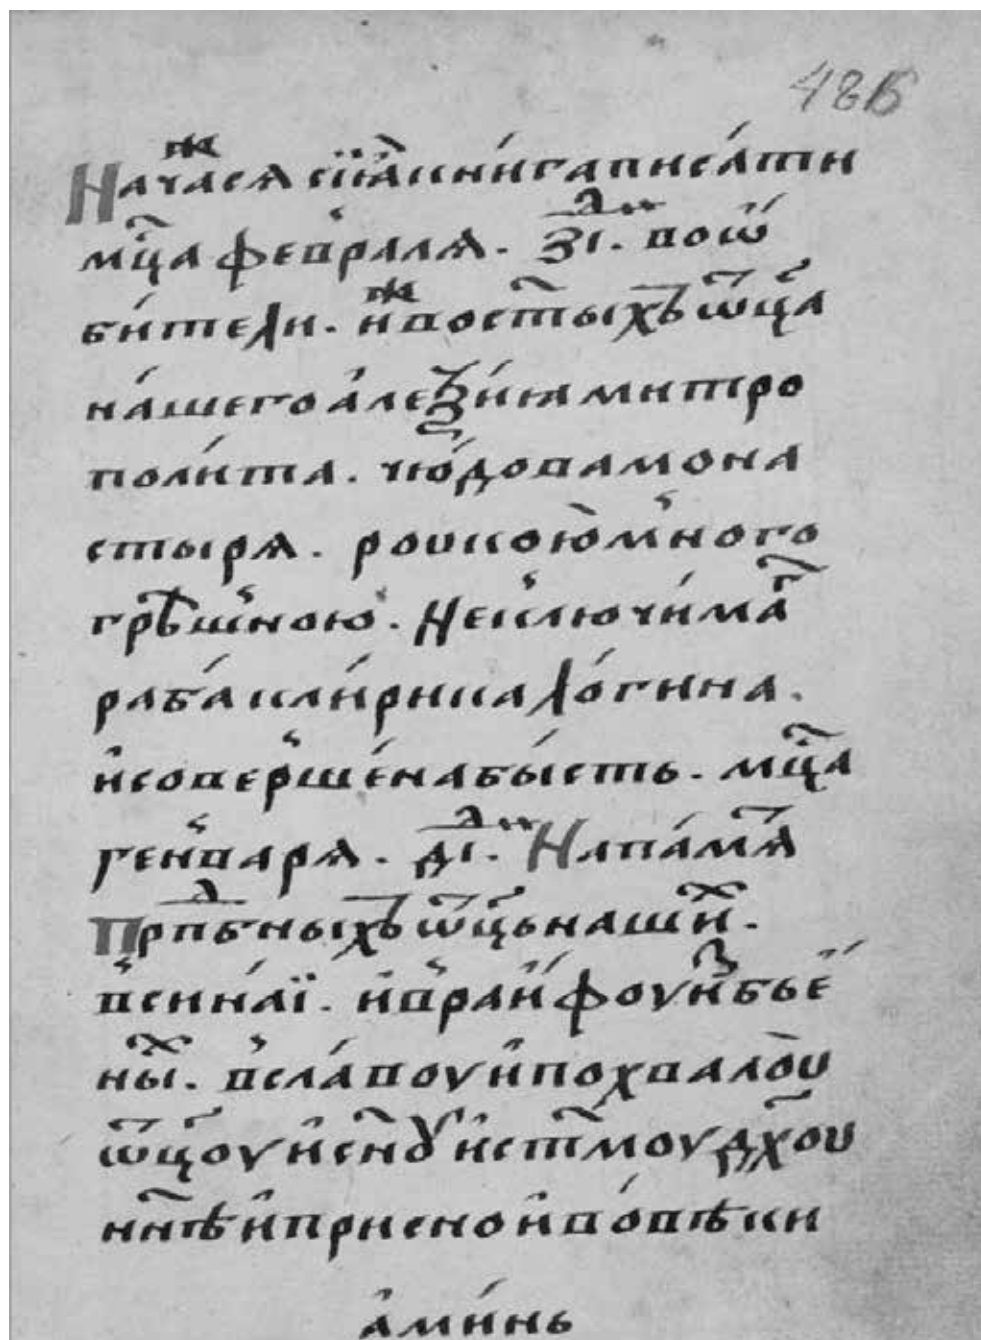 486
Нача́ же сѧ сїѧ̀ кни́га писа́ти
мц҃а феврⷶалѧ. з҃і. дн҃ь. воѡ҆
би́тели. и҆же во ст҃ы́хъ ѿц҃а
на́шего а҆леѯі́ѧ митро
поли́та. чю́дова мона
стырѧ. роукою̀ мно́го
грѣ́шною. Неключи́маг҃
раба́ кли́рика ло́гина.
и҆соверше́на бы́сть. мц҃а
генварѧ. д҃і. дн҃ь. На па́мѧт҃
Прпⷣбныхъ ѿц҃ь нашиⷯ.
в синаи. и҆ в раи҆фоу и҆збье
ны́ⷯ. в сла́воу и҆ похвалоу
ѿц҃оу и҆ сн҃оу и҆ ст҃моу дх҃оу
нн҃ѣ и҆ присно и҆ во́ вѣки
а҆ми́нь